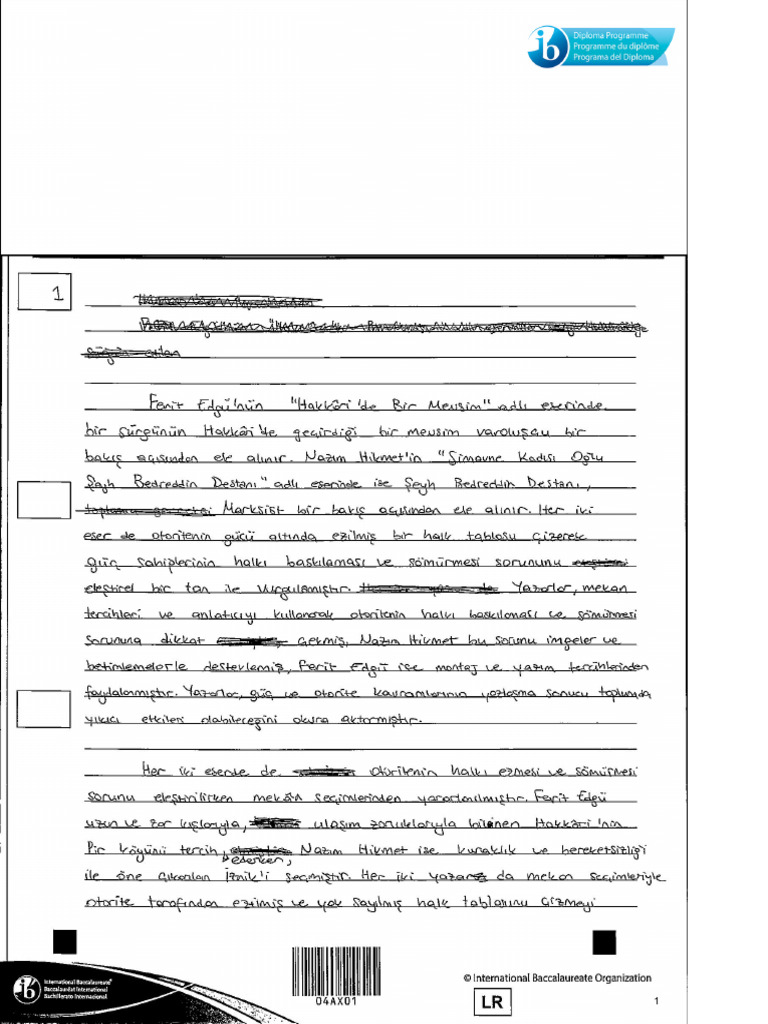 Diploma Programme
Programme du diplôme
Programa del Diploma
1
Ferit Edgü'nün "Hakkâri'de Bir Mevsim" adlı eserinde
bir sürgünün Hakkâri'de geçirdiği bir mevsim varoluşçu bir
bakış açısından ele alınır. Nazım Hikmet'in "Simavne Kadısı Oğlu
Şeyh Bedreddin Destanı" adlı eserinde ise Şeyh Bedreddin Destanı,
Marksist bir bakış açısından ele alınır. Her iki
eser de otoritenin gücü altında ezilmiş bir halk tablosu çizerek
güç sahiplerinin halkı baskılaması ve sömürmesi sorununu
eleştirel bir tan ile vurgulamıştır. Yazarlar, mekan
tercihleri ve anlatıcıyı kullanarak otoritenin halkı baskılaması ve sömürmesi
sorununa dikkat çekmiş, Nazım Hikmet bu sorunu imgeler ve
betimlemelerle desteklemiş, Ferit Edgü ise montaj ve yazım tercihlerinden
faydalanmıştır. Yazarlar, güç ve otorite kavramlarının yozlaşma sonucu toplumda
yıkıcı etkileri olabileceğini okura aktarmıştır.
Her iki eserde de otoritenin halkı ezmesi ve sömürmesi
sorunu eleştirilirken mekân seçimlerinden yararlanılmıştır. Ferit Edgü
uzun ve zor kışlarıyla, ulaşım zorluklarıyla bilinen Hakkâri'nin
Pir köyünü tercih ederken, Nazım Hikmet ise kuraklık ve hereketsizliği
ile öne çıkarılan İznik'i seçmiştir. Her iki yazar da mekan seçimleriyle
otorite tarafından ezilmiş ve yok sayılmış halk tablosunu çizmeyi
International Baccalaureate
Baccalauréat International
Bachillerato Internacional
04AX01
© International Baccalaureate Organization
LR
1